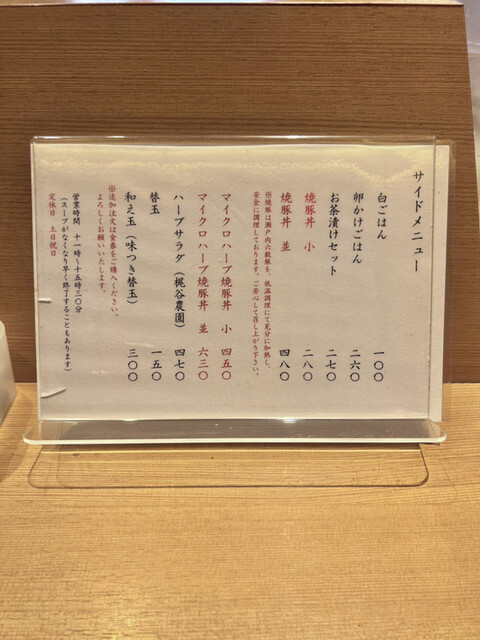 サイドメニュー
白ごはん 一〇〇
卵かけごはん 二六〇
お茶漬けセット 二七〇
焼豚丼 小 二八〇
焼豚丼 並 四八〇
※焼豚は瀬戸内六穀豚を、低温調理にて充分に加熱し、
安全に調理しております。ご安心して召し上がり下さい。
マイクロハーブ焼豚丼 小 四五〇
マイクロハーブ焼豚丼 並 六三〇
ハーブサラダ（梶谷農園） 四七〇
替玉 一五〇
和え玉（味つき替玉） 三〇〇
※追加注文は食券をご購入ください。
よろしくお願いいたします。
営業時間 十一時～十五時三〇分
（スープがなくなり早く終了することもあります）
定休日 土日祝日